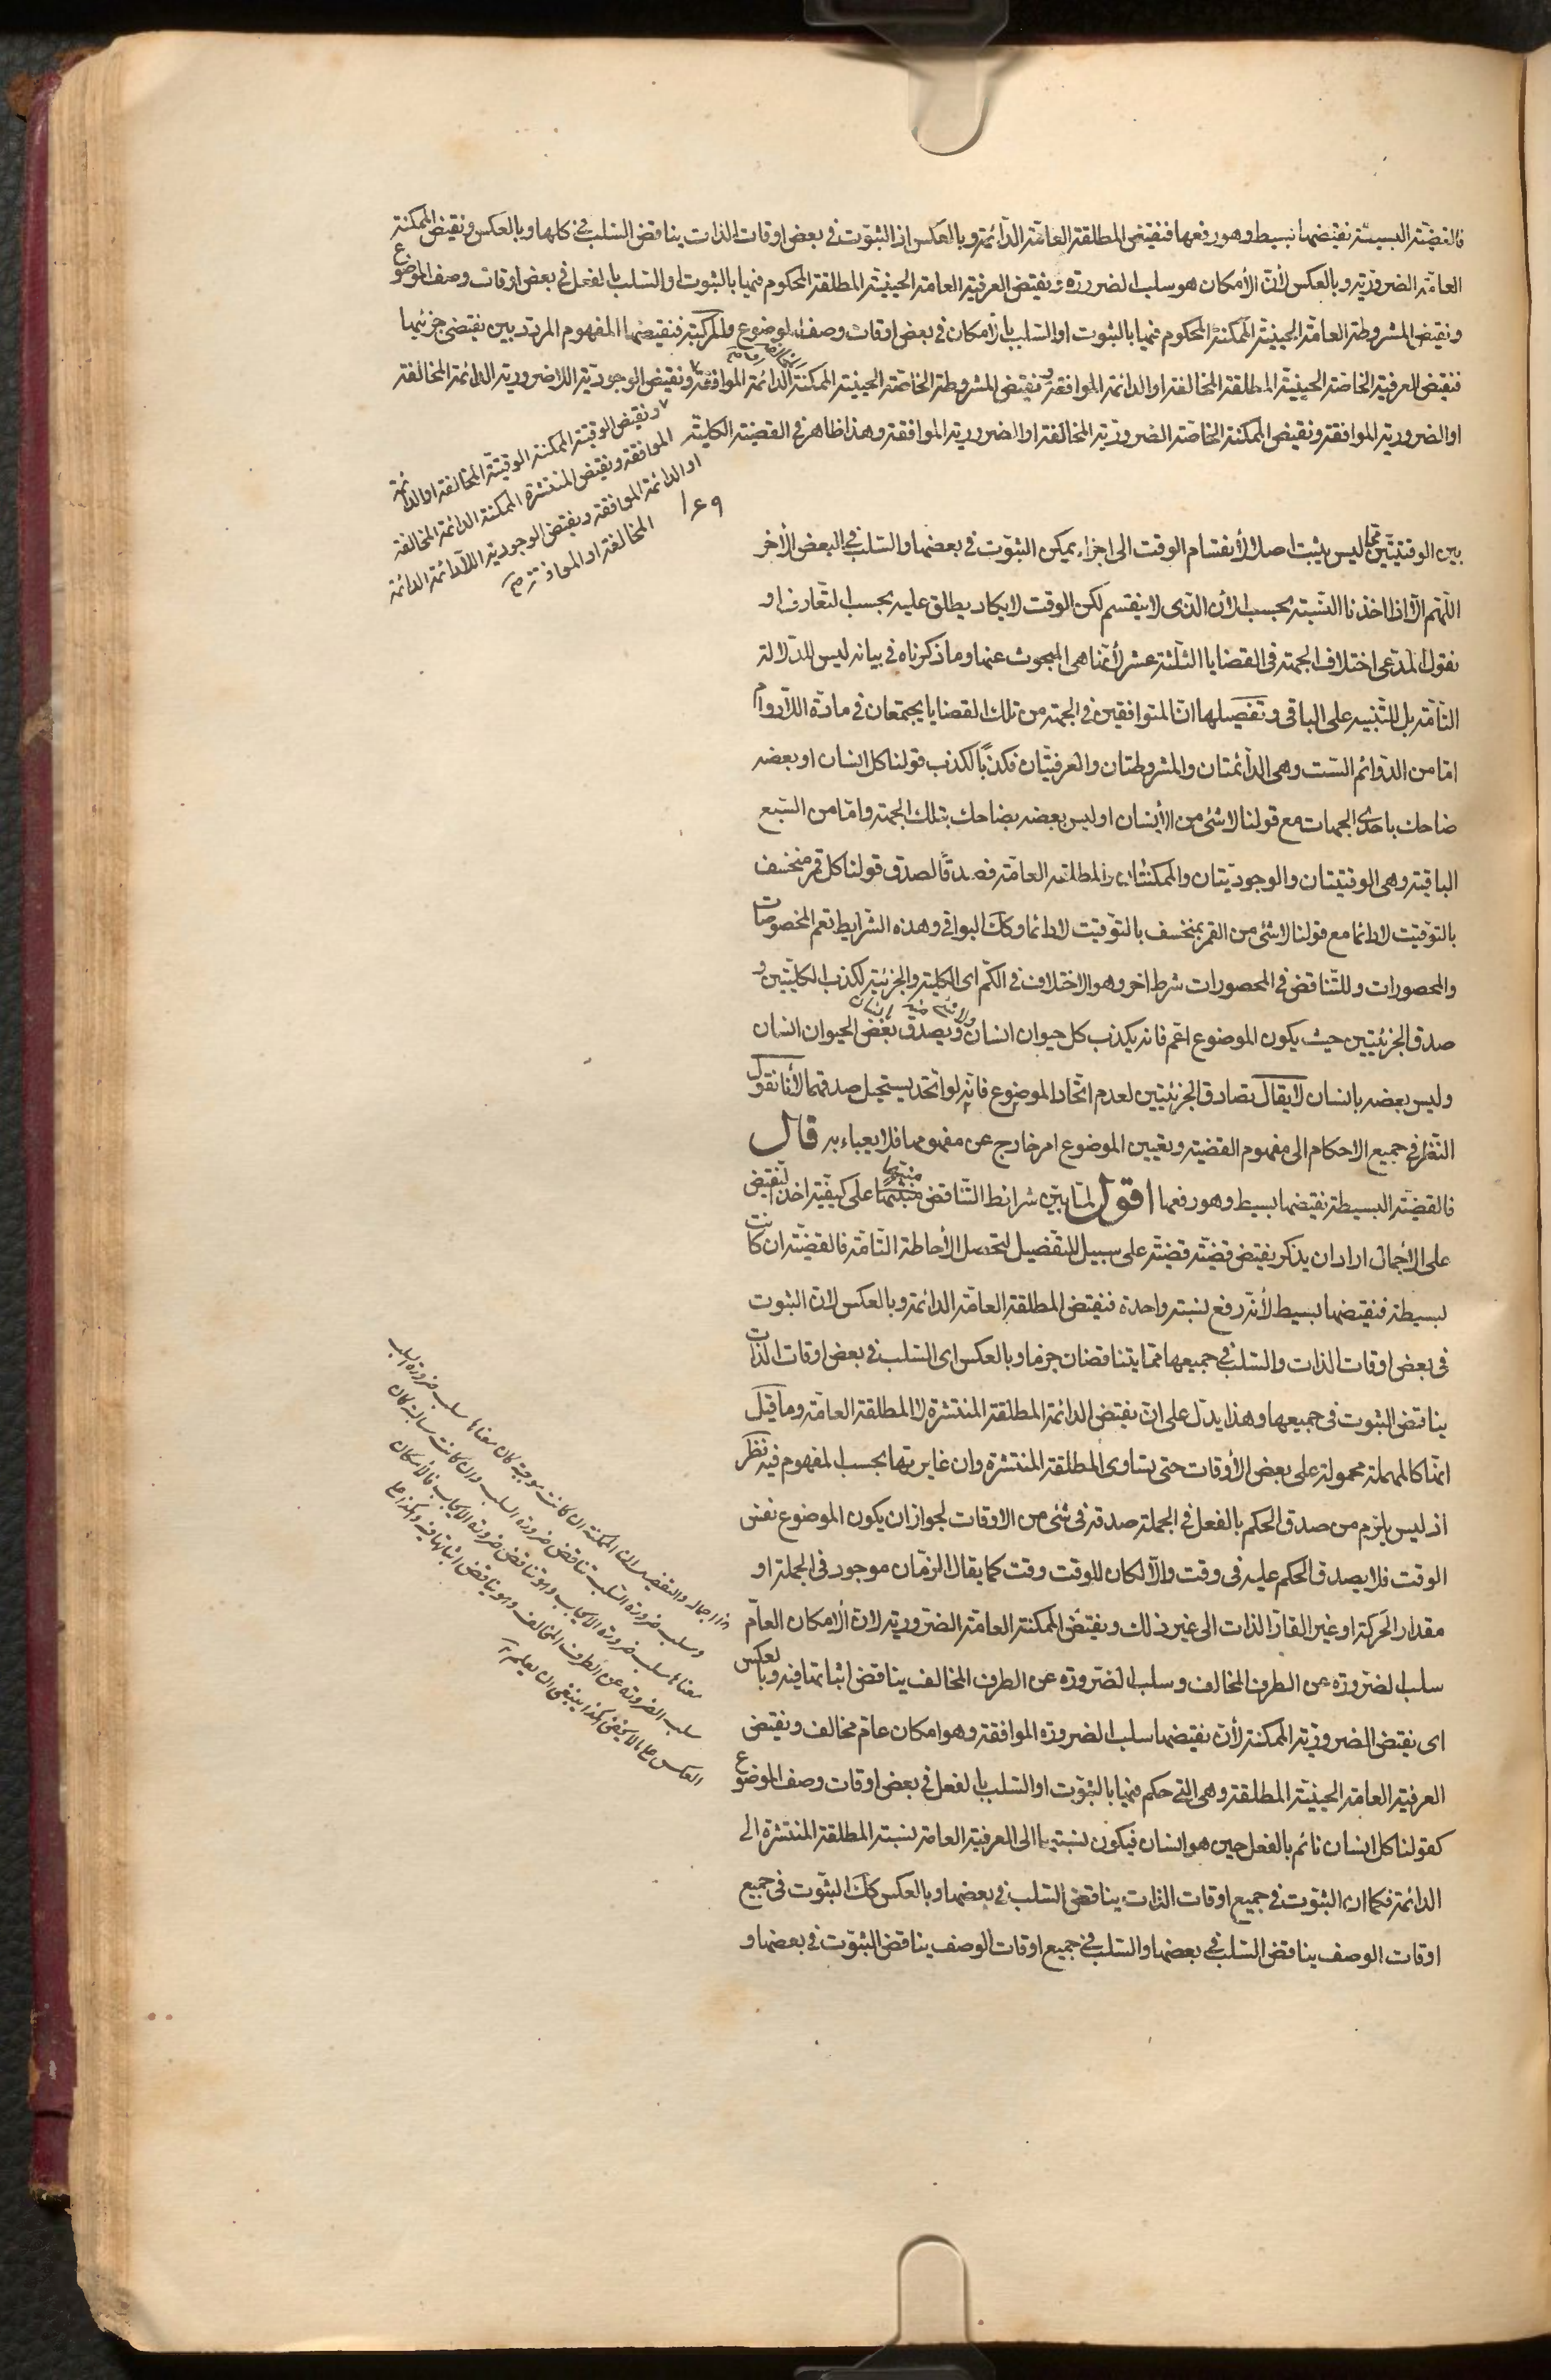 فالقضية البسيطة نقيضها بسيط وهو رفعها فنقيض المطلقة العامة الدائمة وبالعكس اذ الثبوت فى بعض اوقات الذات يناقض السلب فى كلها وبالعكس ونقيض الممكنة
العامة الضرورية وبالعكس لأن الأمكان هو سلب الضرورة ونقيض العرفية العامة الحينية المطلقة المحكوم فيها بالثبوت او السلب بالفعل فى بعض اوقات وصف الموضوع
ونقيض المشروطة العامة الحينية الممكنة المحكوم فيها بالثبوت او السلب بالأمكان فى بعض اوقات وصف الموضوع والمركبة فنقيضها المفهوم المردد بين نقيضى جزئيها
فنقيض العرفية الخاصة الحينية المطلقة المخالفة او الدائمة الموافقة ونقيض المشروطة الخاصة الحينية الممكنة الدائمة الموافقة ونقيض الوجودية اللاضرورية الدائمة المخالفة
او الضرورية الموافقة ونقيض الممكنة الخاصة الضرورية المخالفة او الضرورية الموافقة وهذا ظاهر فى القضية الكلية
ونقيض الوقتية الممكنة الوقتية المخالفة او الدائمة
الموافقة ونقيض المنتشرة الممكنة الدائمة المخالفة
او الدائمة الموافقة ونقيض الوجودية اللادائمة الدائمة
المخالفة او الموافقة
بين الوقتيتين ليس يثبت اصلا لأنقسام الوقت الى اجزاء يمكن الثبوت فى بعضها والسلب فى البعض الأخر
اللهم الا اذا اخذنا النسبة بحسب الأن الذى لا ينقسم لكن الوقت لا يكاد يطلق عليه بحسب التعارف او
نقول المدعى اختلاف الجهة فى القضايا الثلثة عشر لأنها هى المبحوث عنها وما ذكرناه فى بيانه ليس للدلالة
التامة بل للتنبيه على الباقى وتفصيلها ان المتوافقين فى الجهة من تلك القضايا يجتمعان فى مادة اللادوام
اما من الدوائم الست وهى الدائمتان والمشروطتان والعرفيتان فكذبا لكذب قولنا كل انسان او بعضه
ضاحك باحدى الجهات مع قولنا لا شئ من الأنسان او ليس بعضه بضاحك بتلك الجهة واما من السبع
الباقية وهى الوقتيتان والوجوديتان والممكنتان والمطلقة العامة فصدقا لصدق قولنا كل قمر منخسف
بالتوقيت لا دائما مع قولنا لا شئ من القمر بمنخسف بالتوقيت لا دائما وكك البواقى وهذه الشرايط تعم المخصوصات
والمحصورات وللتناقض فى المحصورات شرط اخر وهو الاختلاف فى الكم اى الكلية والجزئية لكذب الكليتين و
صدق الجزئيتين حيث يكون الموضوع اعم فانه يكذب كل حيوان انسان ويصدق بعض الحيوان انسان
وليس بعضه بانسان لا يقال تصادق الجزئيتين لعدم اتحاد الموضوع فانه لو اتحد يستحيل صدقهما لأنا نقول
النظر فى جميع الاحكام الى مفهوم القضية وتعيين الموضوع امر خارج عن مفهومها فلا يعباء به قال
فالقضية البسيطة نقيضها بسيط وهو رفعها اقول لما بين شرائط التناقض منبها على كيفية اخذ النقيض
على الأجمال اراد ان يذكر نقيض قضية قضية على سبيل التفصيل لتحصل الأحاطة التامة فالقضية ان كانت
بسيطة فنقيضها بسيط لأنه رفع نسبة واحدة فنقيض المطلقة العامة الدائمة وبالعكس لان الثبوت
فى بعض اوقات الذات والسلب فى جميعها مما يتناقضان جزما وبالعكس اى السلب فى بعض اوقات الذات
يناقض الثبوت فى جميعها وهذا يدل على ان نقيض الدائمة المطلقة المنتشرة لا المطلقة العامة وما قيل
انها كالمهملة محمولة على بعض الأوقات حتى يساوى المطلقة المنتشرة وان غايرتها بحسب المفهوم فيه نظر
اذ ليس يلزم من صدق الحكم بالفعل فى الجملة صدقه فى شئ من الاوقات لجواز ان يكون الموضوع نفس
الوقت فلا يصدق الحكم عليه فى وقت والا لكان للوقت وقت كما يقال الزمان موجود فى الجملة او
مقدار الحركة او غير القار الذات الى غير ذلك ونقيض الممكنة العامة الضرورية لان الأمكان العام
سلب الضرورة عن الطرف المخالف وسلب الضرورة عن الطرف المخالف يناقض اثباتها فيه وبالعكس
اى نقيض الضرورية الممكنة لأن نقيضها سلب الضرورة الموافقة وهو امكان عام مخالف ونقيض
العرفية العامة الحينية المطلقة وهى التى حكم فيها بالثبوت او السلب بالفعل فى بعض اوقات وصف الموضوع
كقولنا كل انسان نائم بالفعل حين هو انسان فيكون نسبتها الى العرفية العامة نسبة المطلقة المنتشرة الى
الدائمة فكما ان الثبوت فى جميع اوقات الذات يناقض السلب فى بعضها وبالعكس كك الثبوت فى جميع
اوقات الوصف يناقض السلب فى بعضها والسلب فى جميع اوقات الوصف يناقض الثبوت فى بعضها و
هذا اجمال والتفصيل ان الممكنة ان كانت موجبة كان معناها سلب ضرورة السلب
وسلب ضرورة السلب يناقض ضرورة السلب وان كانت سالبة كان
معناها سلب ضرورة الايجاب وهو يناقض ضرورة الايجاب فالأمكان
سلب الضرورة عن الطرف المخالف وهو يناقض اثباتها فيه وهكذا
العكس لا يخفى هكذا ينبغى ان يعلم